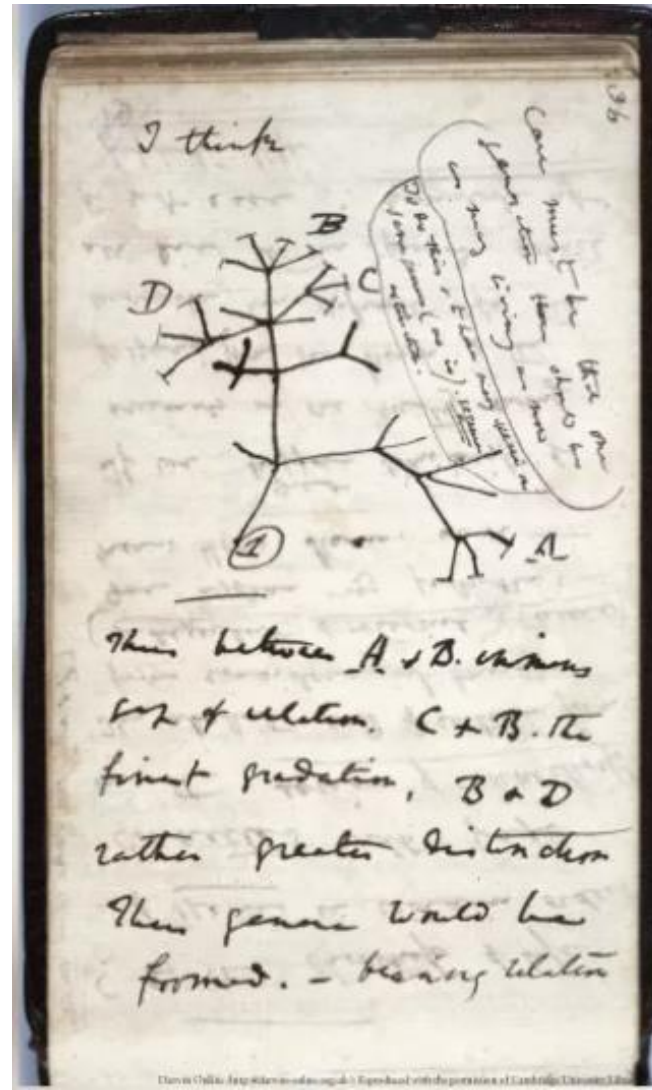 36
I think
Case must be that one
generation then should be
as many living as now
To do this & to have many species in
same genus (as is). requires
extinction.
B
C
D
A
1
Thus between A & B. immens
gap of relation. C & B. The
finest gradation, B & D
rather greater distinction
Thus genera would be
formed. — bearing relation
Darwin Online (http://darwin-online.org.uk/) Reproduced with the permission of Cambridge University Library